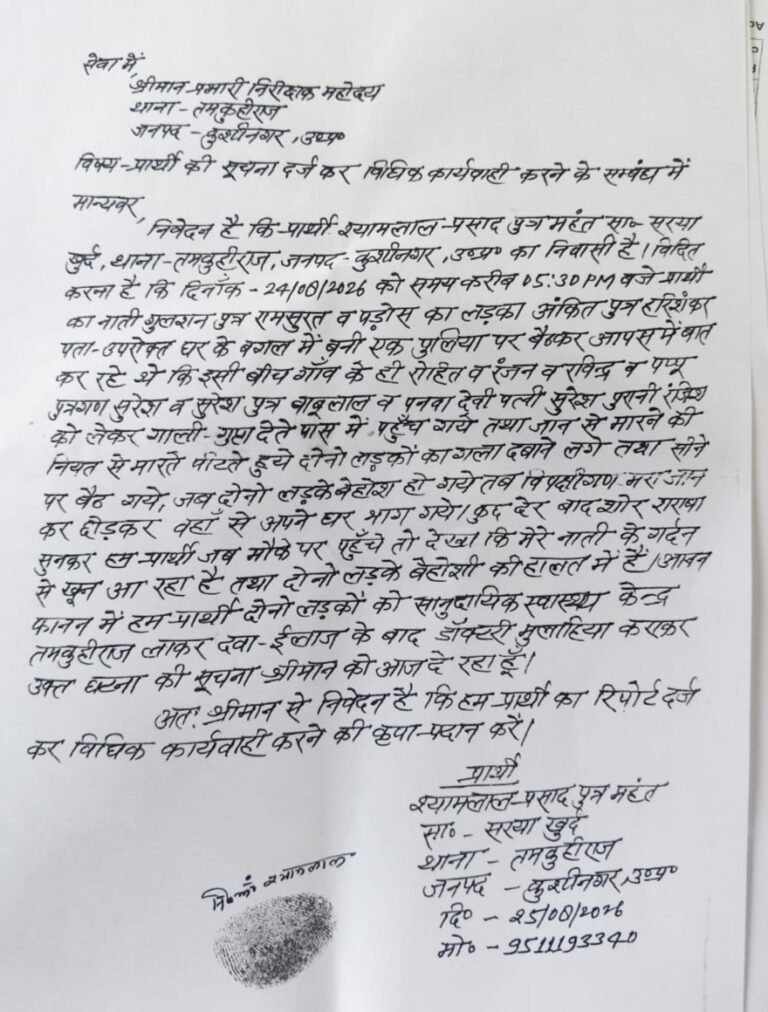 सेवा में,
श्रीमान प्रभारी निरीक्षक महोदय
थाना - तमकुहीराज
जनपद - कुशीनगर, उ०प्र०
विषय - प्रार्थी की सूचना दर्ज कर विधिक कार्यवाही करने के सम्बंध में
मान्यवर,
निवेदन है कि प्रार्थी श्यामलाल प्रसाद पुत्र महंत सा० सरया
खुर्द, थाना - तमकुहीराज, जनपद - कुशीनगर, उ०प्र० का निवासी है। विदित
करना है कि दिनाँक - 24/06/2026 को समय करीब 05:30 PM बजे प्रार्थी
का नाती गुलशन पुत्र रामसुरत व पड़ोस का लड़का अंकित पुत्र हरिशंकर
पता - उपरोक्त घर के बगल में बनी एक पुलिया पर बैठकर आपस में बात
कर रहे थे कि इसी बीच गाँव के ही रोहित व रंजन व रविन्द्र व पप्पू
पुत्रगण सुरेश व सुरेश पुत्र बाबूलाल व पनवा देवी पत्नी सुरेश पुरानी रंजिश
को लेकर गाली - गुप्ता देते पास में पहुँच गये तथा जान से मारने की
नियत से मारते पीटते हुये दोनो लड़कों का गला दबाने लगे तथा सीने
पर बैठ गये, जब दोनो लड़के बेहोश हो गये तब विपक्षीगण मरा जान
कर छोड़कर वहाँ से अपने घर भाग गये। कुछ देर बाद शोर शराबा
सुनकर हम प्रार्थी जब मौके पर पहुँचे तो देखा कि मेरे नाती के गर्दन
से खून आ रहा है तथा दोनो लड़के बेहोशी की हालत में हैं। आनन
फानन में हम प्रार्थी दोनो लड़कों को सामुदायिक स्वास्थ्य केन्द्र
तमकुहीराज लाकर दवा - ईलाज के बाद डॉक्टरी मुलाहिया कराकर
उक्त घटना की सूचना श्रीमान को आज दे रहा हूँ।
अतः श्रीमान से निवेदन है कि हम प्रार्थी का रिपोर्ट दर्ज
कर विधिक कार्यवाही करने की कृपा प्रदान करें।
प्रार्थी
श्यामलाल प्रसाद पुत्र महंत
सा० - सरया खुर्द
थाना - तमकुहीराज
जनपद - कुशीनगर, उ०प्र०
दि० - 25/06/2026
मो० - 9511193340
श्यामलाल